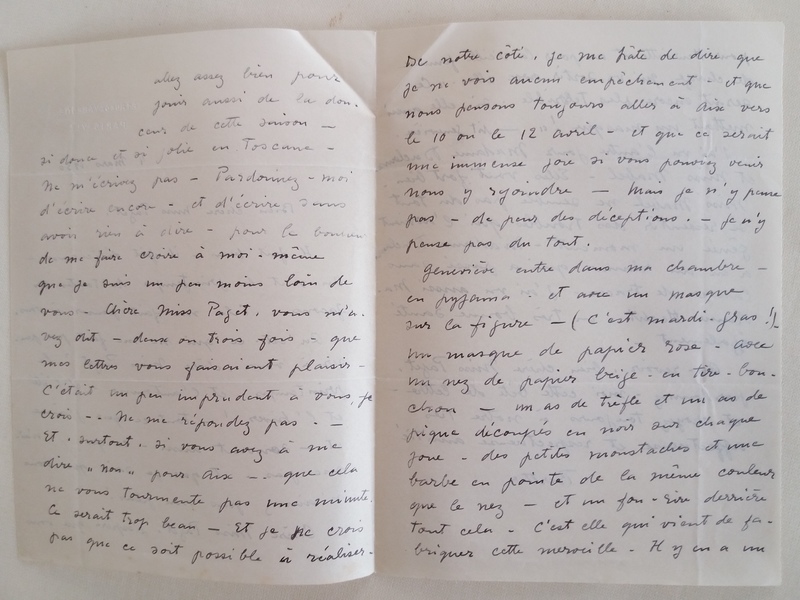 allez assez bien pour
jouir aussi de la dou-
ceur de cette saison -
si douce et si jolie en Toscane -
Ne m'écrivez pas - Pardonnez-moi
d'écrire encore - et d'écrire sans
avoir rien à dire - pour le bonheur
de me faire croire à moi-même
que je suis un peu moins loin de
vous - Chère Miss Paget, vous m'a-
vez dit - deux ou trois fois - que
mes lettres vous faisaient plaisir -
C'était un peu imprudent à vous, je
crois -- Ne me répondez pas - -
Et, surtout, si vous avez à me
dire "non" pour Aix -- que cela
ne vous tourmente pas une minute.
Ce serait trop beau - Et je ne crois
pas que ce soit possible à réaliser -
De notre côté, je me hâte de dire que
je ne vois aucun empêchement - et que
nous pensons toujours aller à Aix vers
le 10 ou le 12 avril - et que ce serait
une immense joie si vous pouviez venir
nous y rejoindre - Mais je n'y pense
pas - de peur des déceptions. - Je n'y
pense pas du tout.
Geneviève entre dans ma chambre -
en pyjama - et avec un masque
sur la figure - (C'est mardi-gras !)
un masque de papier rose - avec
un nez de papier beige - en tire-bou-
chon - un as de trèfle et un as de
pique découpés en noir sur chaque
joue - des petites moustaches et une
barbe en pointe de la même couleur
que le nez - et un fou-rire derrière
tout cela - C'est elle qui vient de fa-
briquer cette merveille - Il y en a un